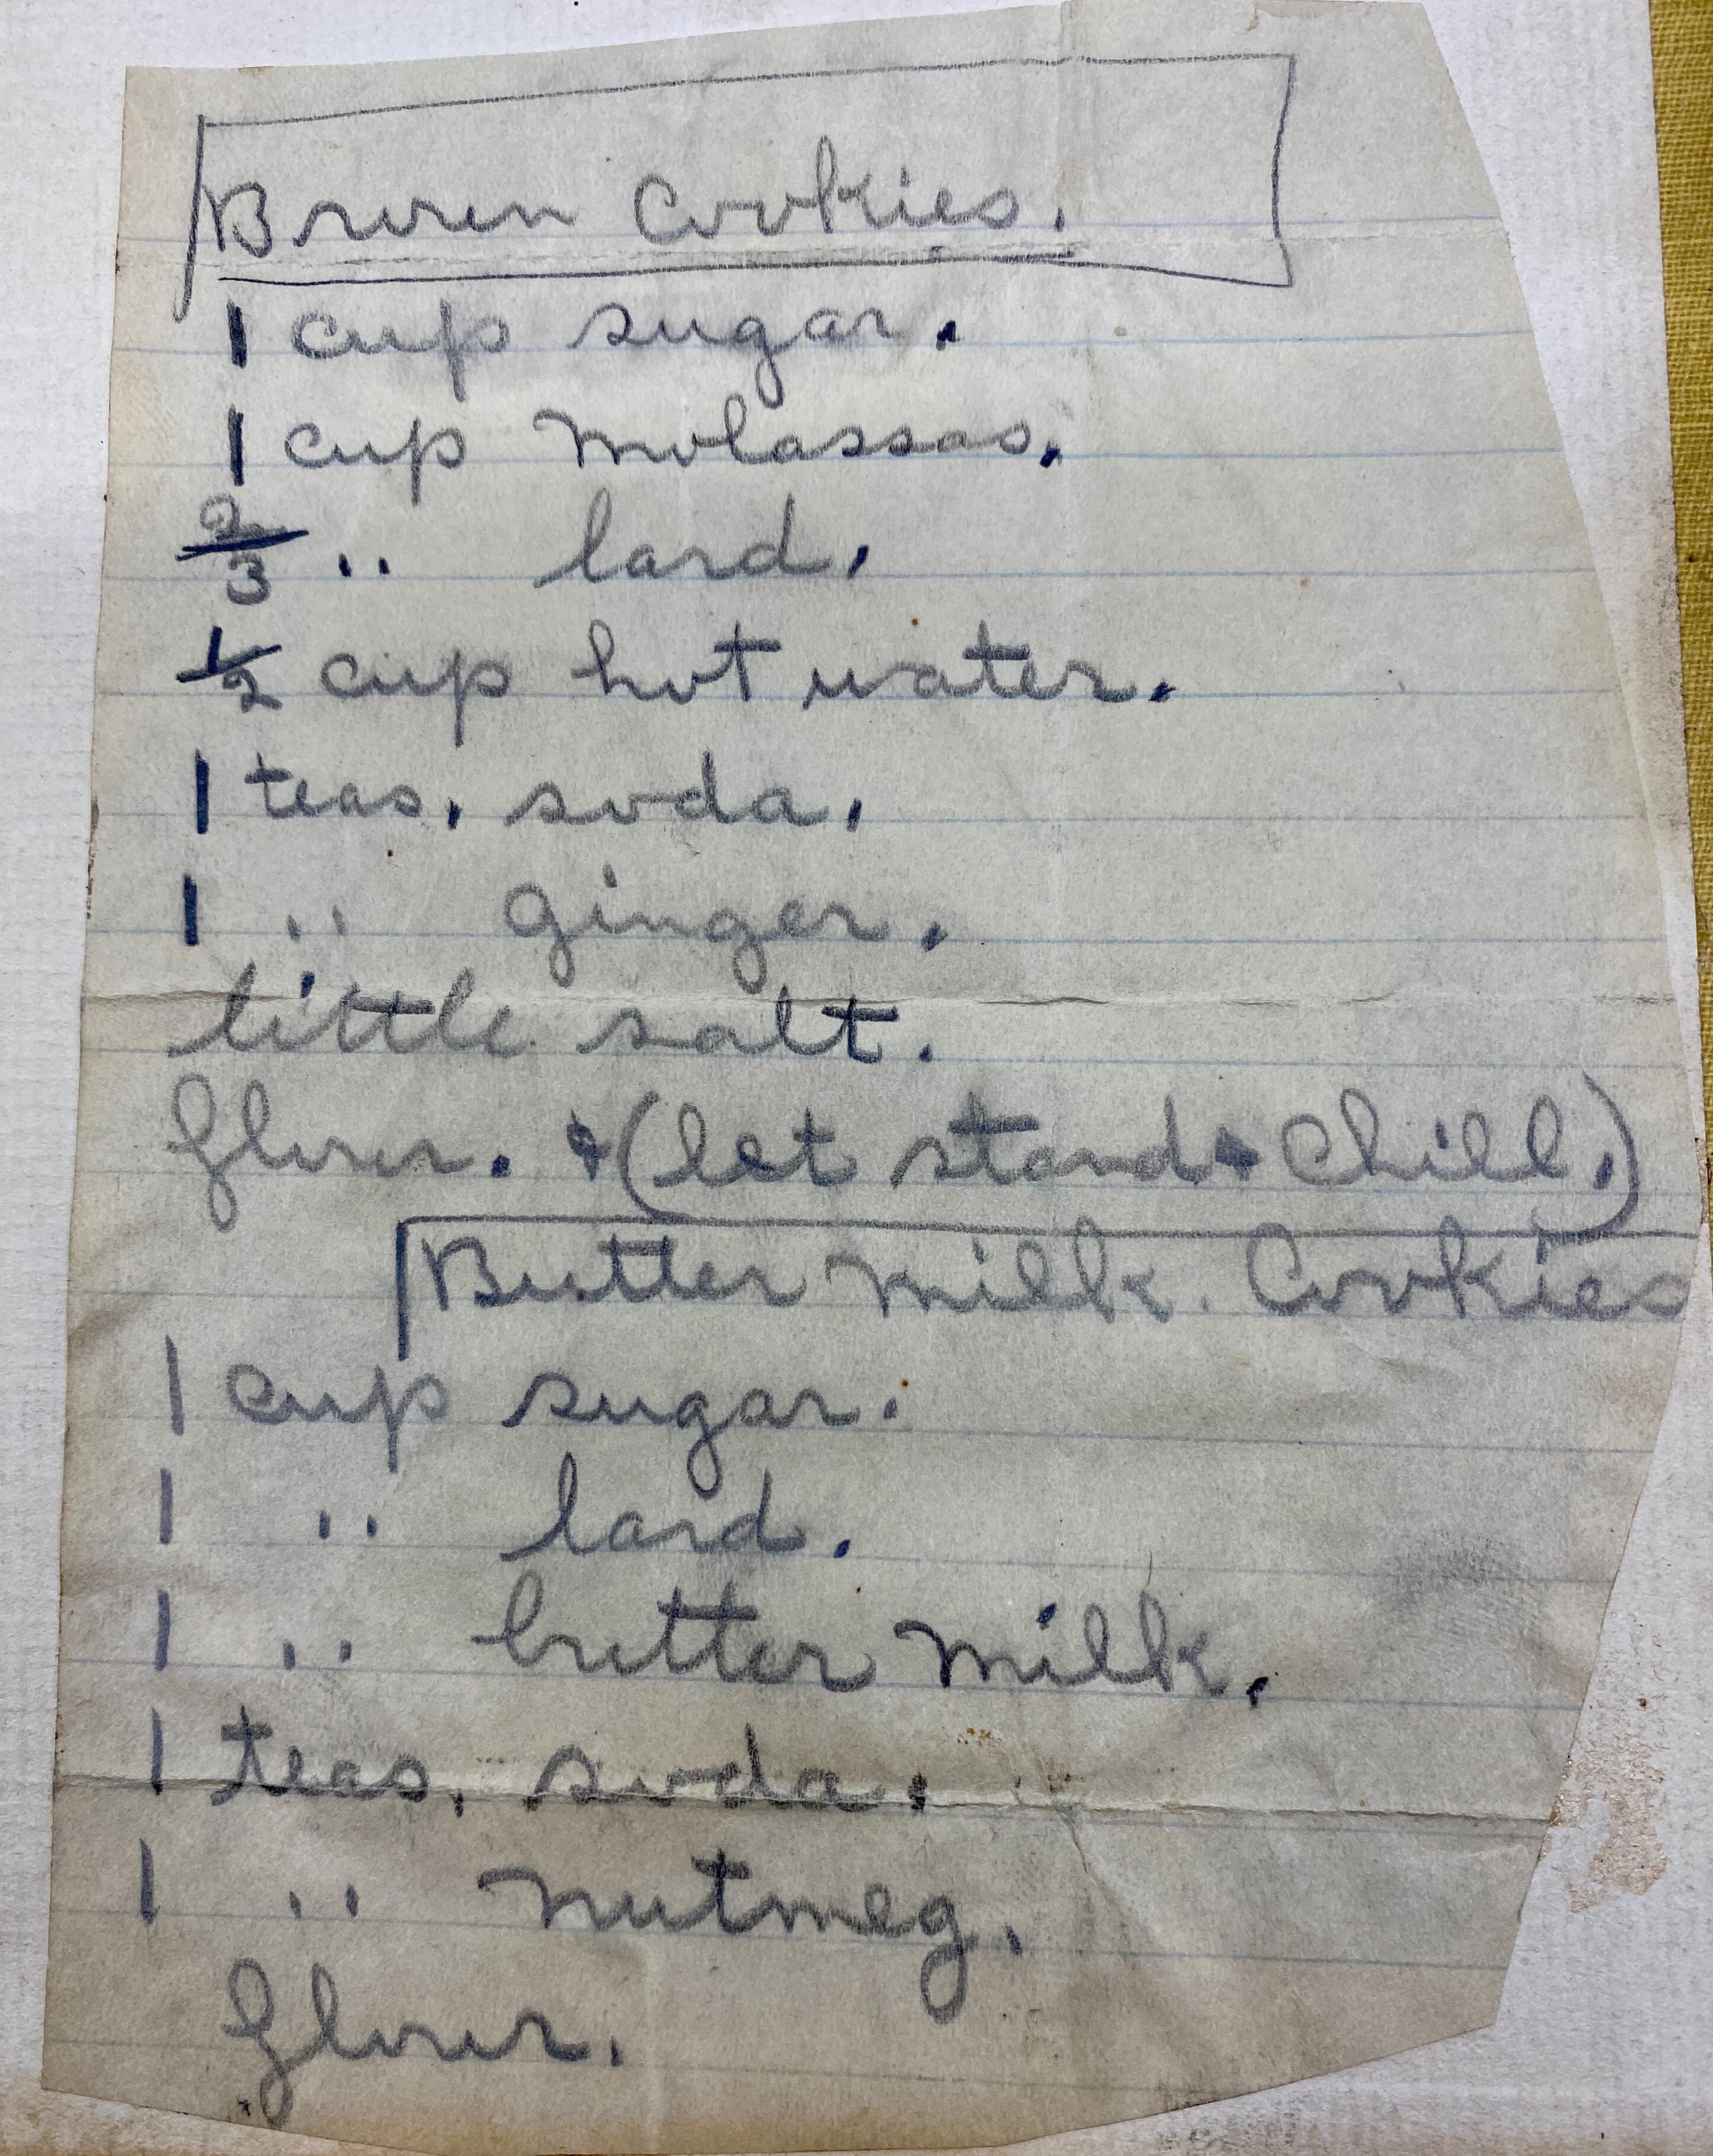 Brown Cookies.
1 cup sugar.
1 cup Molassas.
2/3 " lard.
1/2 cup hot water.
1 teas. soda.
1 " ginger.
little salt.
flour. & (let stand & Chill.)
Butter Milk. Cookies
1 cup sugar.
1 " lard.
1 " butter Milk.
1 teas. soda.
1 " nutmeg.
flour.